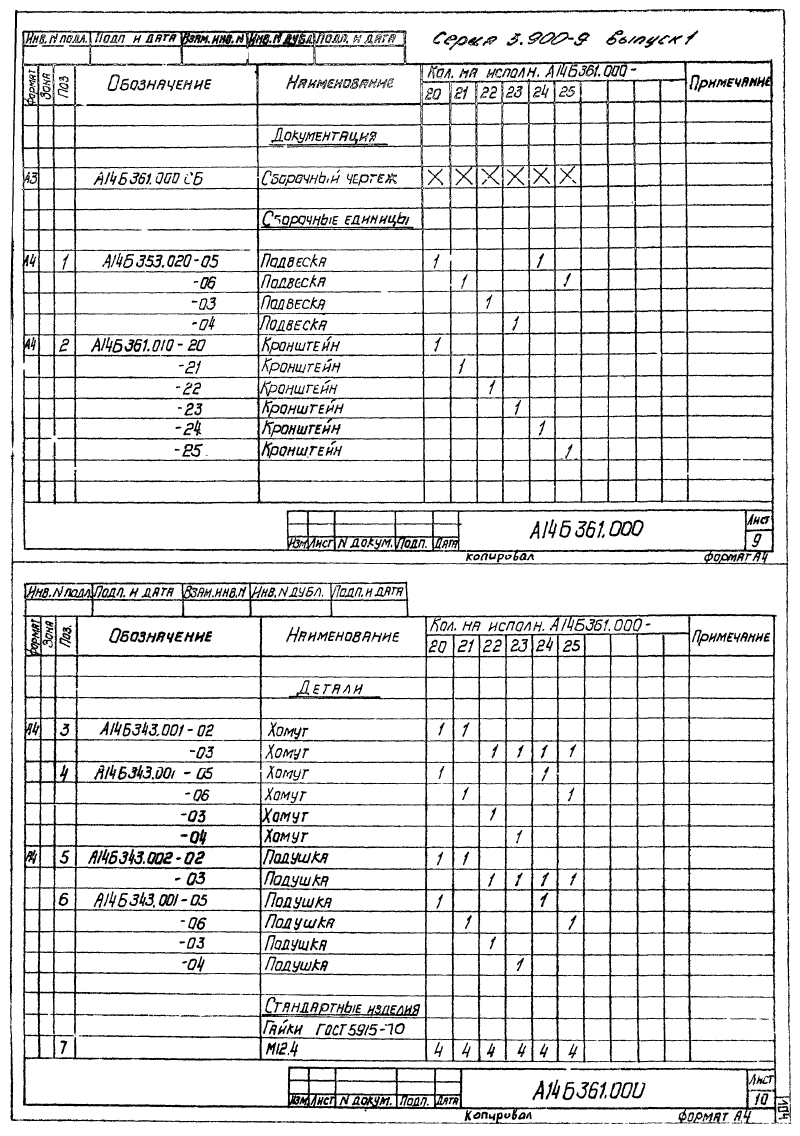 Инв. N подл. Подп и дата Взам. инв. N Инв. N дубл. Подп. и дата Серия 5.900-9 Выпуск 1
Формат Зона Поз Обозначение Наименование Кол. на исполн. А14Б361.000- Примечание
20 21 22 23 24 25
Документация
А3 А14Б361.000 СБ Сборочный чертеж X X X X X X
Сборочные единицы
А4 1 А14Б353.020-05 Подвеска 1 1
-06 Подвеска 1 1
-03 Подвеска 1
-04 Подвеска 1
А4 2 А14Б361.010-20 Кронштейн 1
-21 Кронштейн 1
-22 Кронштейн 1
-23 Кронштейн 1
-24 Кронштейн 1
-25 Кронштейн 1
А14Б361.000 Лист
9
Изм Лист N докум. Подп. Дата
Копировал Формат А4
Инв. N подл Подп. и дата Взам. инв. N Инв. N дубл. Подп. и дата
Формат Зона Поз. Обозначение Наименование Кол. на исполн. А14Б361.000- Примечание
20 21 22 23 24 25
Детали
А4 3 А14Б343.001-02 Хомут 1 1
-03 Хомут 1 1 1 1
4 А14Б343.001-05 Хомут 1 1
-06 Хомут 1 1
-03 Хомут 1
-04 Хомут 1
А4 5 А14Б343.002-02 Подушка 1 1
-03 Подушка 1 1 1 1
6 А14Б343.001-05 Подушка 1 1
-06 Подушка 1 1
-03 Подушка 1
-04 Подушка 1
Стандартные изделия
Гайки ГОСТ 5915-70
7 М12.4 4 4 4 4 4 4
А14Б361.000 Лист
10
Изм Лист N докум. Подп. Дата
Копировал Формат А4
104